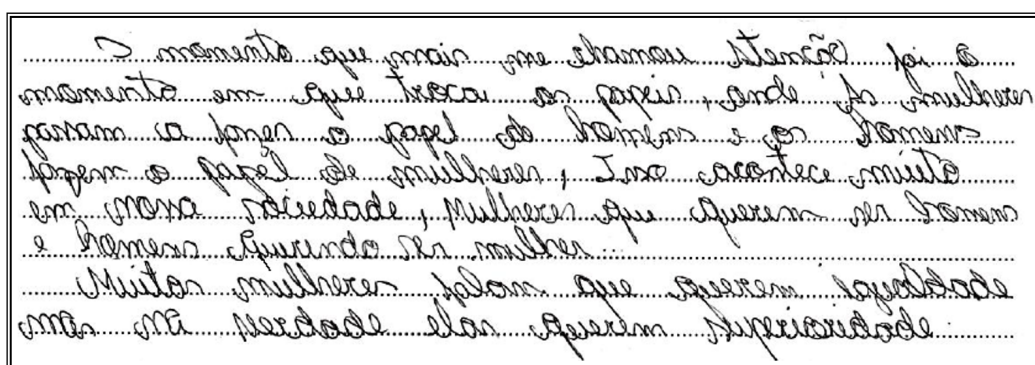 O momento que mais me chamou Atencão foi o
momento em que troca os papeis, onde As mulheres
passam a fazer o papel de homens e os homens
fazem o papel de mulheres, Isso acontece muito
em nossa sociedade, Mulheres que querem ser homens
e homens querendo ser mulher
Muitas mulheres falam que querem igualdade
mas na verdade elas querem superioridade